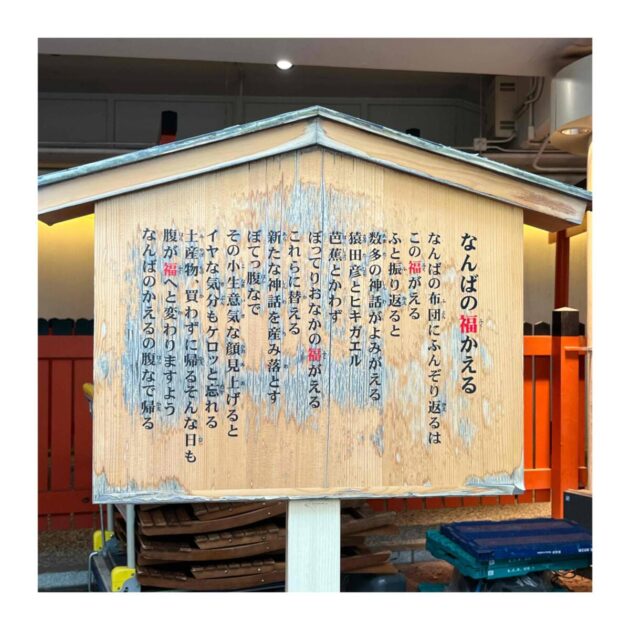 なんばの福かえる
なんばの布団にふんぞり返るは
この福がえる
ふと振り返ると
数多の神話がよみがえる
猿田彦とヒキガエル
芭蕉とかわず
ぽってりおなかの福がえる
これらに替える
新たな神話を産み落とす
ぽてっ腹なで
その小生意気な顔見上げると
イヤな気分もケロッと忘れる
土産物、買わずに帰るそんな日も
腹が福へと変わりますよう
なんばのかえるの腹なで帰る